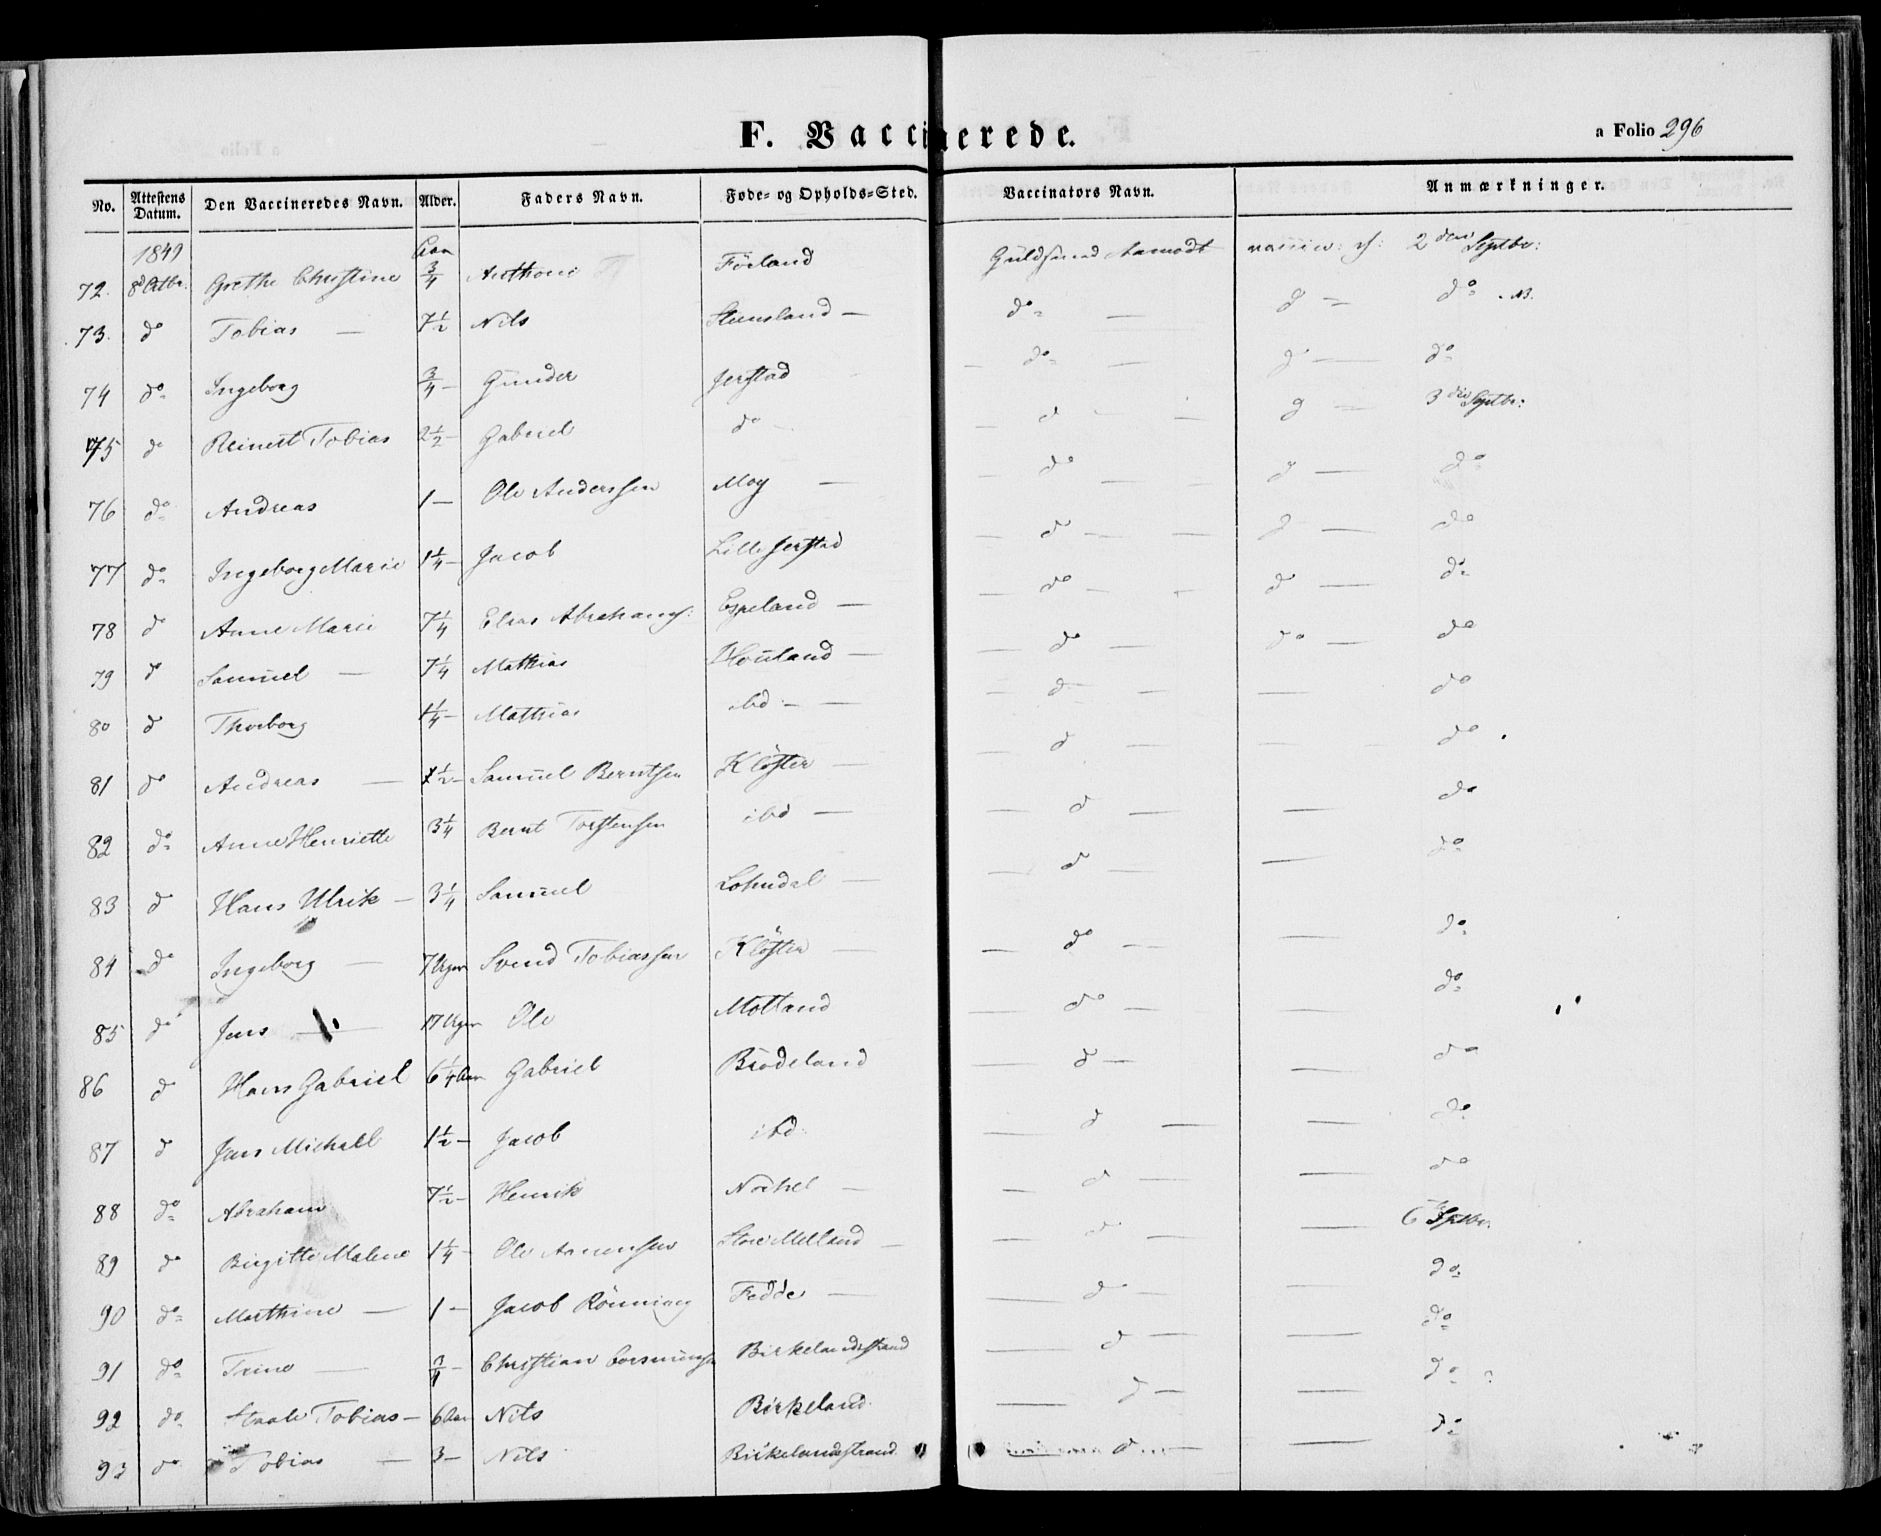 F. Vaccinerede.
a Folio 296
No. Attestens Datum. Den Vaccineredes Navn. Alder. Faders Navn. Føde- og Opholds-Sted. Vaccinators Navn. Anmærkninger.
1849 Aar
72. 8 Octbr. Grethe Christine 3/4 Anthoni Förland Guldsmed Aamodt 2den Septbr:
73. do Tobias — 7 1/2 Nils Steensland — do — d — do
74 do Ingeborg 3/4 — Gunder Jerstad — do — d — do
75 do Reinert Tobias 2 1/2 — Gabriel do d — d — 3die Septbr:
76 do Andreas 1 — Ole Anderssen Moy — — do — d — do
77 do Ingeborg Marie 1 1/4 — Jacob Lille Jerstad — do — d — do
78 do Anne Marie 7 1/4 Elias Abrahams: Espeland — — do — do — do
79 do Samuel — 7 1/4 Mathias Houland — — do — do — do
80 do Thorborg 1 1/4 — Mathias ibd — — d — — do
81 do Andreas — 1 1/2 — Samuel Berntsen Klöster — — d — — do
82 do Anne Henriette 3 1/4 Bernt Torstensen ibd — — d — — do
83 d Hans Ulrik — 3 1/4 Samuel Lohndal — — d — — do
84 do Ingeborg — 7 Uger Svend Tobiassen Klöster — — do — — do
85 do Jens — 17 Uger Ole Motland — do — — do
86 d Hans Gabriel 6 1/4 Aar Gabriel — d — — do
87 d Jens Michall 1 1/2 — Jacob ibd — d — — do
88 do Abraham 7 1/2 — Henrik — — d — — do
89 do Birgitte Malene 1 1/4 — Ole Store Melland — — d — — 6 Septbr.
90 do Marthine — 1 — Jacob Rönning Fedde — — do — — do
91 do Trine — 3/4 — Christian Birkelandsstrand — d — — do
92 do Staale Tobias — 6 Aar Nils Birkeland — d — — do
93 do Tobias — 3 — Nils Birkelandsstrand d — — do